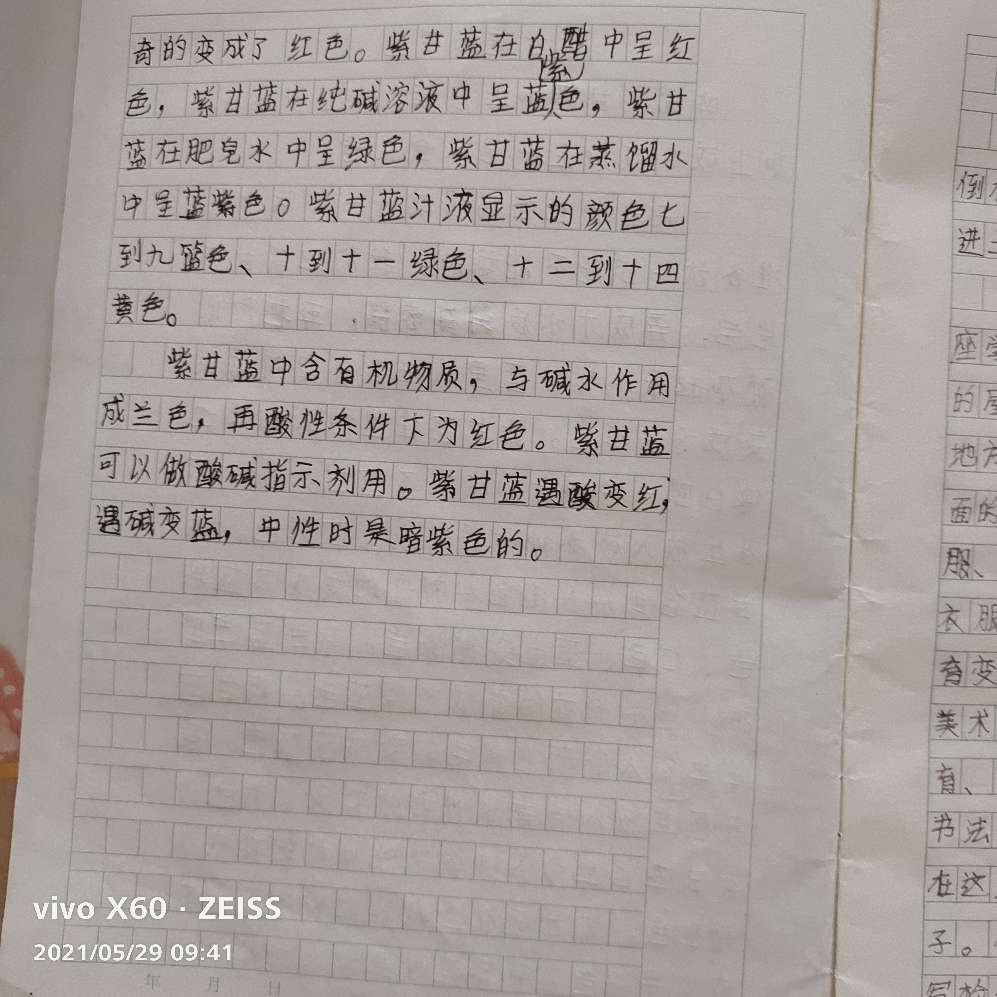 奇的变成了红色。紫甘蓝在白醋中呈红
色，紫甘蓝在纯碱溶液中呈蓝紫色，紫甘
蓝在肥皂水中呈绿色，紫甘蓝在蒸馏水
中呈蓝紫色。紫甘蓝汁液显示的颜色七
到九篮色、十到十一绿色、十二到十四
黄色。
紫甘蓝中含有机物质，与碱水作用
成兰色，再酸性条件下为红色。紫甘蓝
可以做酸碱指示剂用。紫甘蓝遇酸变红，
遇碱变蓝，中性时是暗紫色的。
年 月 日
倒
进
座
的
地方
面的
服、
衣服
育变
美术
育、
书法
在这
子。
vivo X60 · ZEISS
2021/05/29 09:41